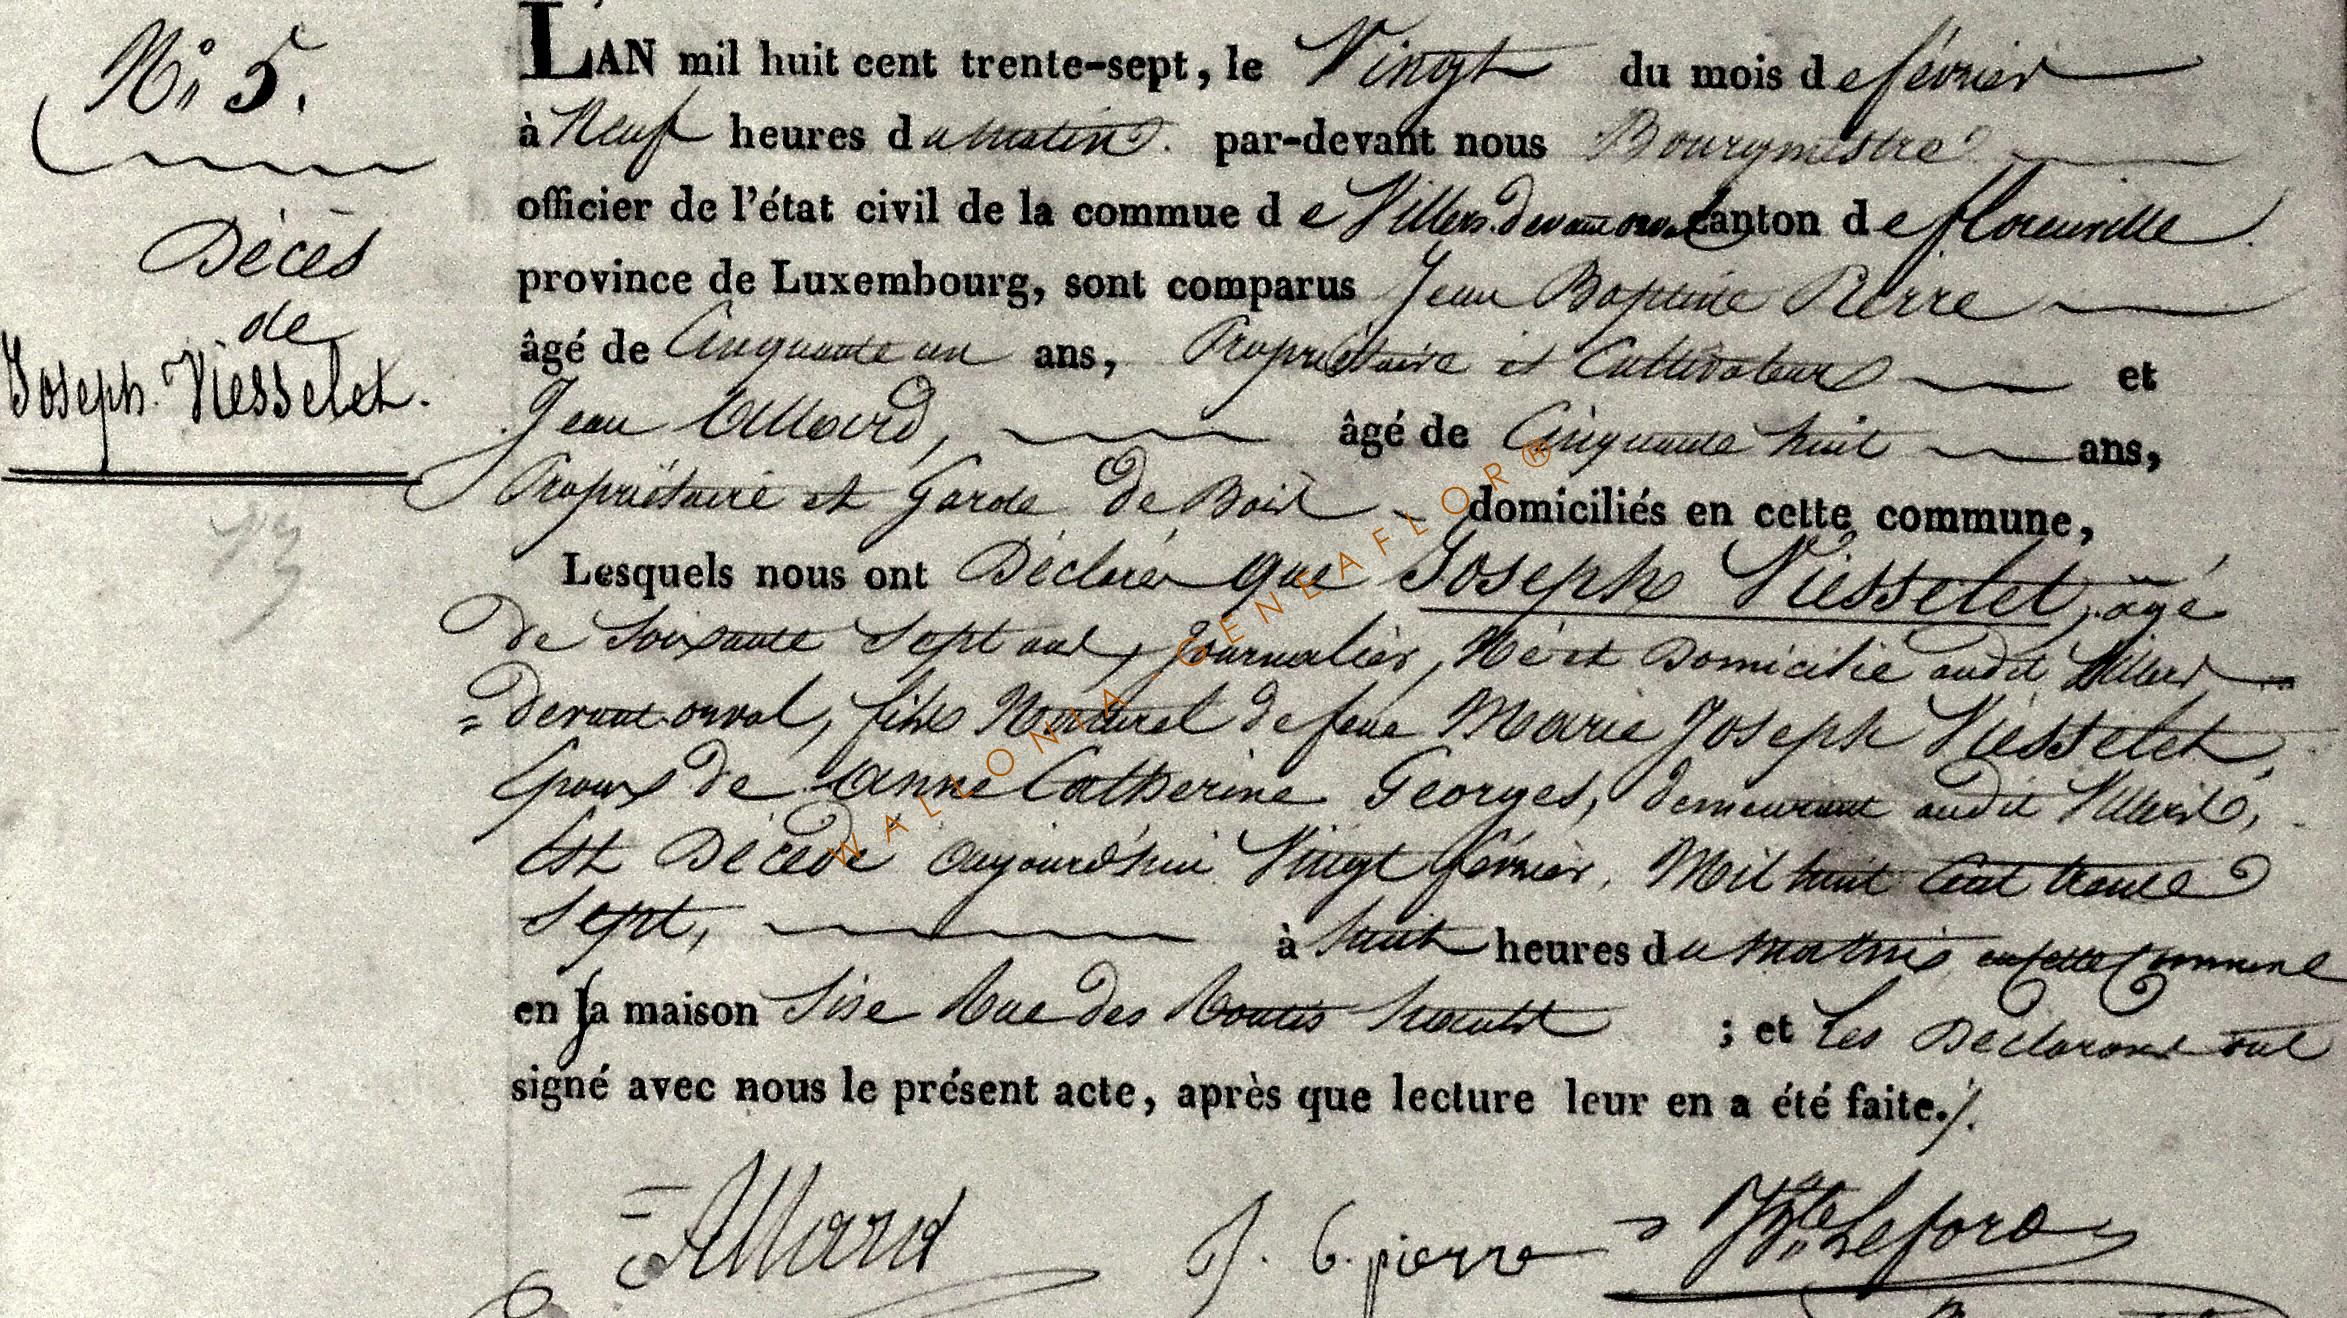 N° 5.
Décès
de
Joseph Viesselet.
L'AN mil huit cent trente-sept, le Vingt du mois de février
à Neuf heures du matin. par-devant nous Bourgmestre
officier de l'état civil de la commue de Villers devant orval canton de florenville
province de Luxembourg, sont comparus Jean Baptiste Pierre
âgé de Cinquante un ans, Propriétaire et Cultivateur et
Jean Allard, âgé de Cinquante huit ans,
Propriétaire et Garde de Bois domiciliés en cette commune,
Lesquels nous ont Déclaré que Joseph Viesselet, âgé
de Soixante Sept ans, Journalier, Né et Domicilié audit Villers
= devant orval, fils Naturel de feue Marie Joseph Viesselet,
Epoux de Anne Catherine Georges, demeurant audit Villers,
Est Décédé aujourd'hui Vingt février, Mil huit Cent trente
Sept, à huit heures du matin en cette Commune
en sa maison Sise Rue des ; et Les Déclarans ont
signé avec nous le présent acte, après que lecture leur en a été faite./.
Allard J. B. pierre Lefora
WALLONIA - GENEAFLOR®